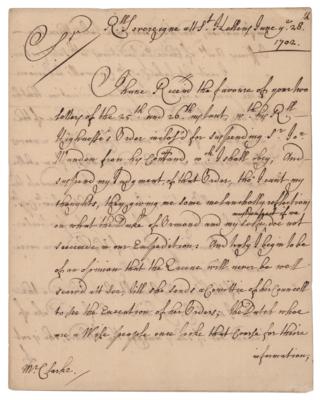 Sr R:ll Soveraigne att St Hellens June ye 28th
1702.
I have Recevd the favour of your two
letters of the 25th and 26th instant, wth his Rll
Highnesse's Order inclos'd for suspending Sr Jo:
Munden from his Comand, wch I shall obey, And
suspend my Judgment, of that Order, tho I want my
thoughts, they giving me some melancholly reflections
on what the Duke of Ormond and my selfe
succeede in our Expedition: And truly I begin to be
of an opinion that the Queene will never be well
served att Sea, till she sends a Comittee of her Councell
to see the Execution of her Orders; the Dutch who
are a Wise people once tooke that Course for their
information;
Mr Clarke.